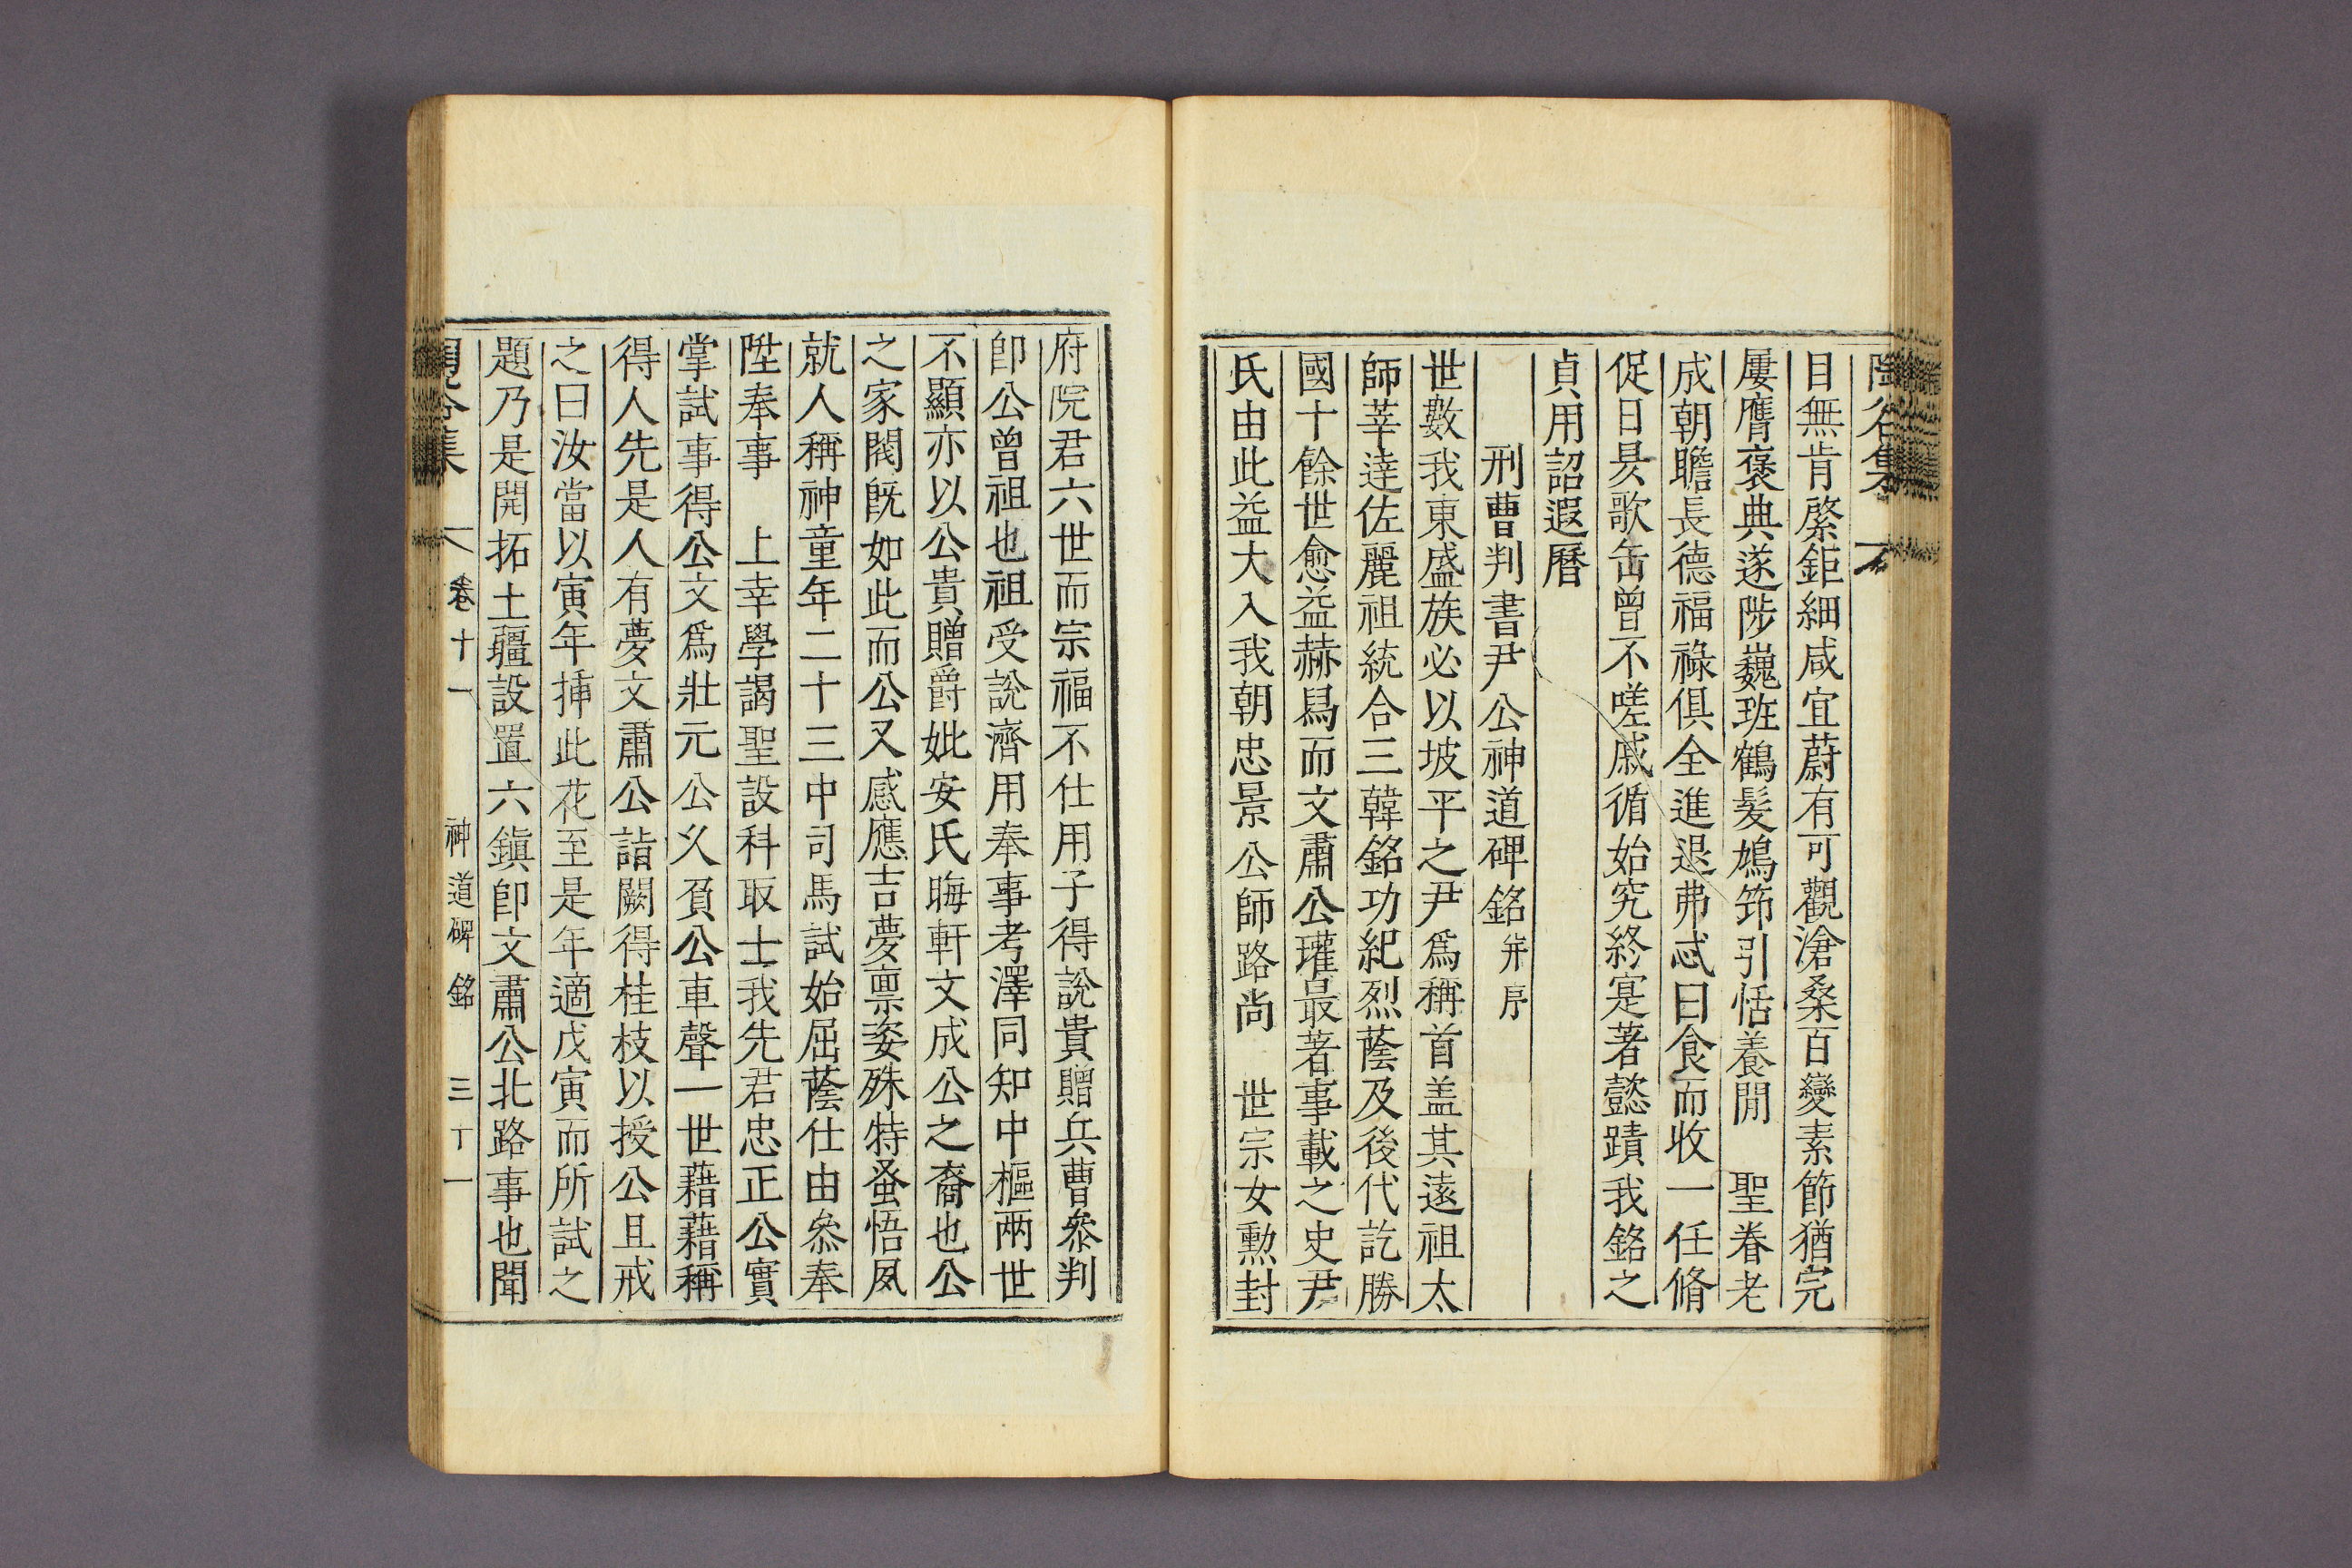 陶谷集
目無肯綮鉅細咸宜蔚有可觀滄桑百變素節猶完
屢膺褒典遂陟巍班鶴髮鳩笻引恬養閒 聖眷老
成朝瞻長德福祿俱全進退弗忒日食而收一任脩
促日昃歌缶曾不嗟戚循始究終寔著懿蹟我銘之
貞用詔遐曆
刑曹判書尹公神道碑銘 幷序
世數我東盛族必以坡平之尹爲稱首盖其遠祖太
師莘達佐麗祖統合三韓銘功紀烈蔭及後代訖勝
國十餘世愈益赫舄而文肅公瓘最著事載之史尹
氏由此益大入我朝忠景公師路尚 世宗女勳封
府院君六世而宗福不仕用子得說貴贈兵曹叅判
卽公曾祖也祖受說濟用奉事考澤同知中樞兩世
不顯亦以公貴贈爵妣安氏晦軒文成公之裔也公
之家閥旣如此而公又感應吉夢禀姿殊特蚤悟夙
就人稱神童年二十三中司馬試始屈蔭仕由叅奉
陞奉事 上幸學謁聖設科取士我先君忠正公實
掌試事得公文爲壯元公乆負公車聲一世藉藉稱
得人先是人有夢文肅公詣闕得桂枝以授公且戒
之曰汝當以寅年揷此花至是年適戊寅而所試之
題乃是開拓土疆設置六鎭卽文肅公北路事也聞
陶谷集 卷十一 神道碑銘 三丁一